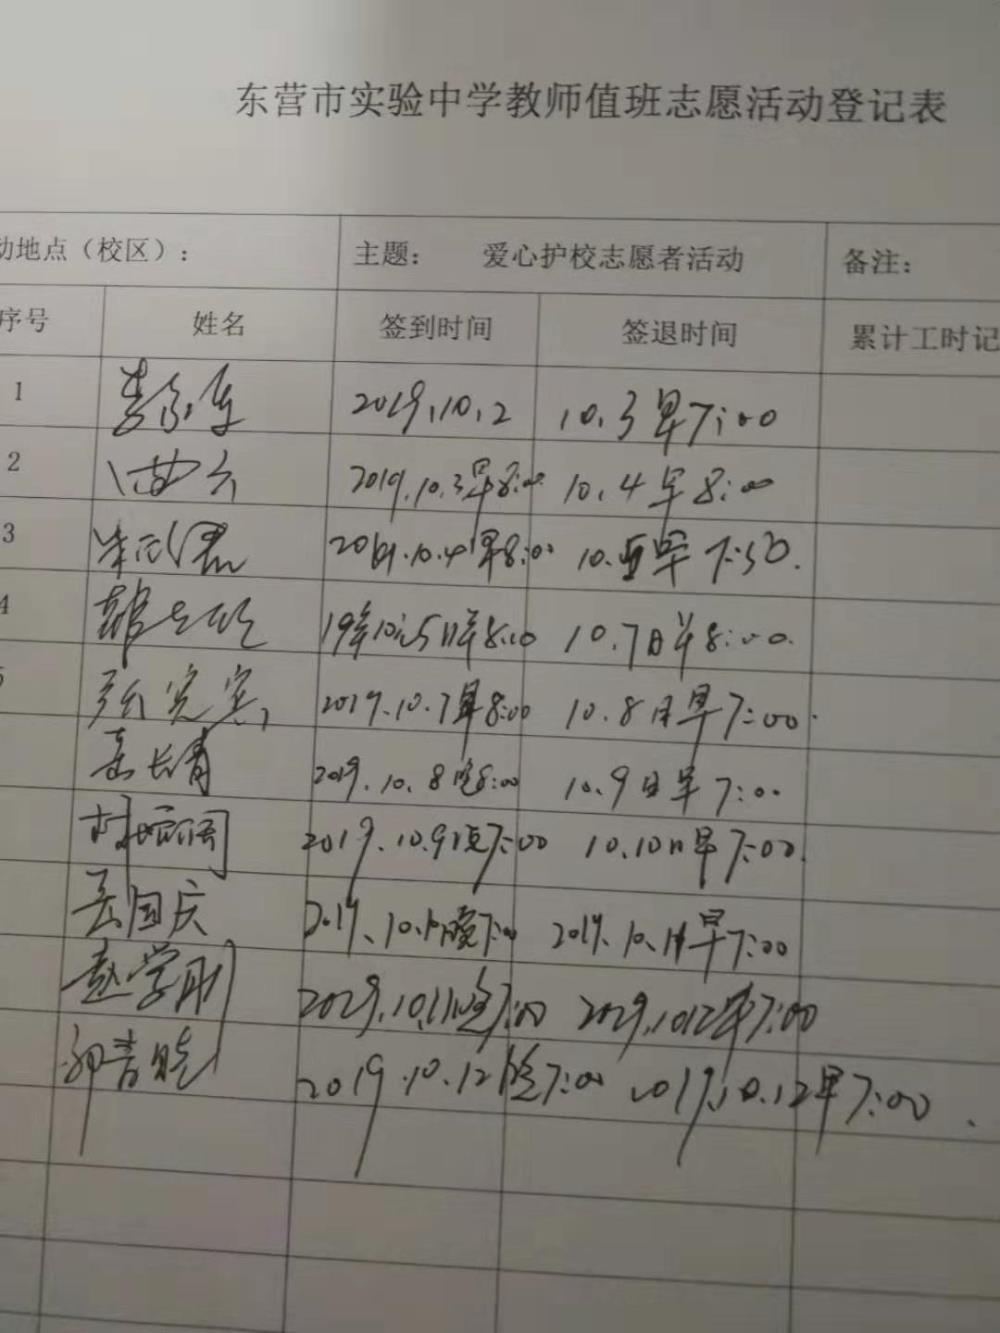 东营市实验中学教师值班志愿活动登记表
动地点（校区）： 主题： 爱心护校志愿者活动 备注：
序号 姓名 签到时间 签退时间 累计工时记
1 2019.10.2 10.3早7:00
2 2019.10.3早8:00 10.4早8:00
3 10.4早8:00 10.五早7:50.
4 19年10.5日早8:00 10.7日早8:00.
5 2019.10.7早8:00 10.8日早7:00.
岳长青 2019.10.8晚8:00 10.9日早7:00
2019.10.9晚7:00 10.10日早7:00.
岳国庆 2019.10.10晚7:00 2019.10.11早7:00
赵学刚 2029.10.11晚7:00 2029.1012早7:00
郭青晓 2019.10.12晚7:00 2019.10.12早7:00.